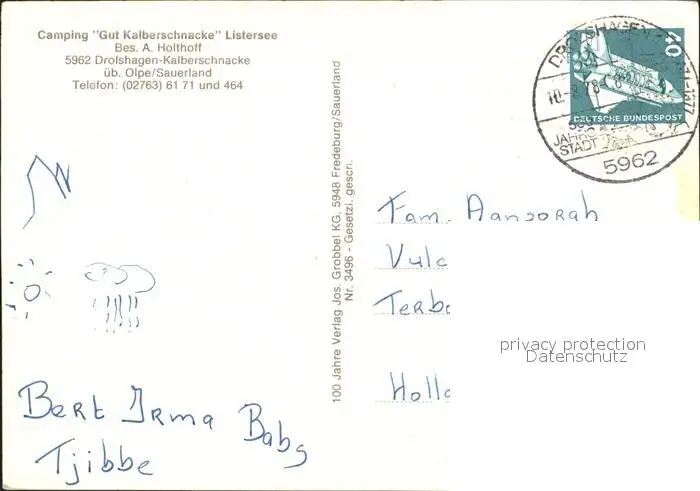 Camping "Gut Kalberschnacke" Listersee
Bes. A. Holthoff
5962 Drolshagen-Kalberschnacke
üb. Olpe/Sauerland
Telefon: (02763) 61 71 und 464
100 Jahre Verlag Jos. Grobbel KG, 5948 Fredeburg/Sauerland
Nr. 3496 - Gesetzl. gesch.
DROLSHAGEN
1477-1977
10.-8.78
JAHRE
STADT
5962
40
DEUTSCHE BUNDESPOST
Fam. Aansorah
Vulc
Terbo
Holla
privacy protection
Datenschutz
Bert Irma Babs
Tjibbe